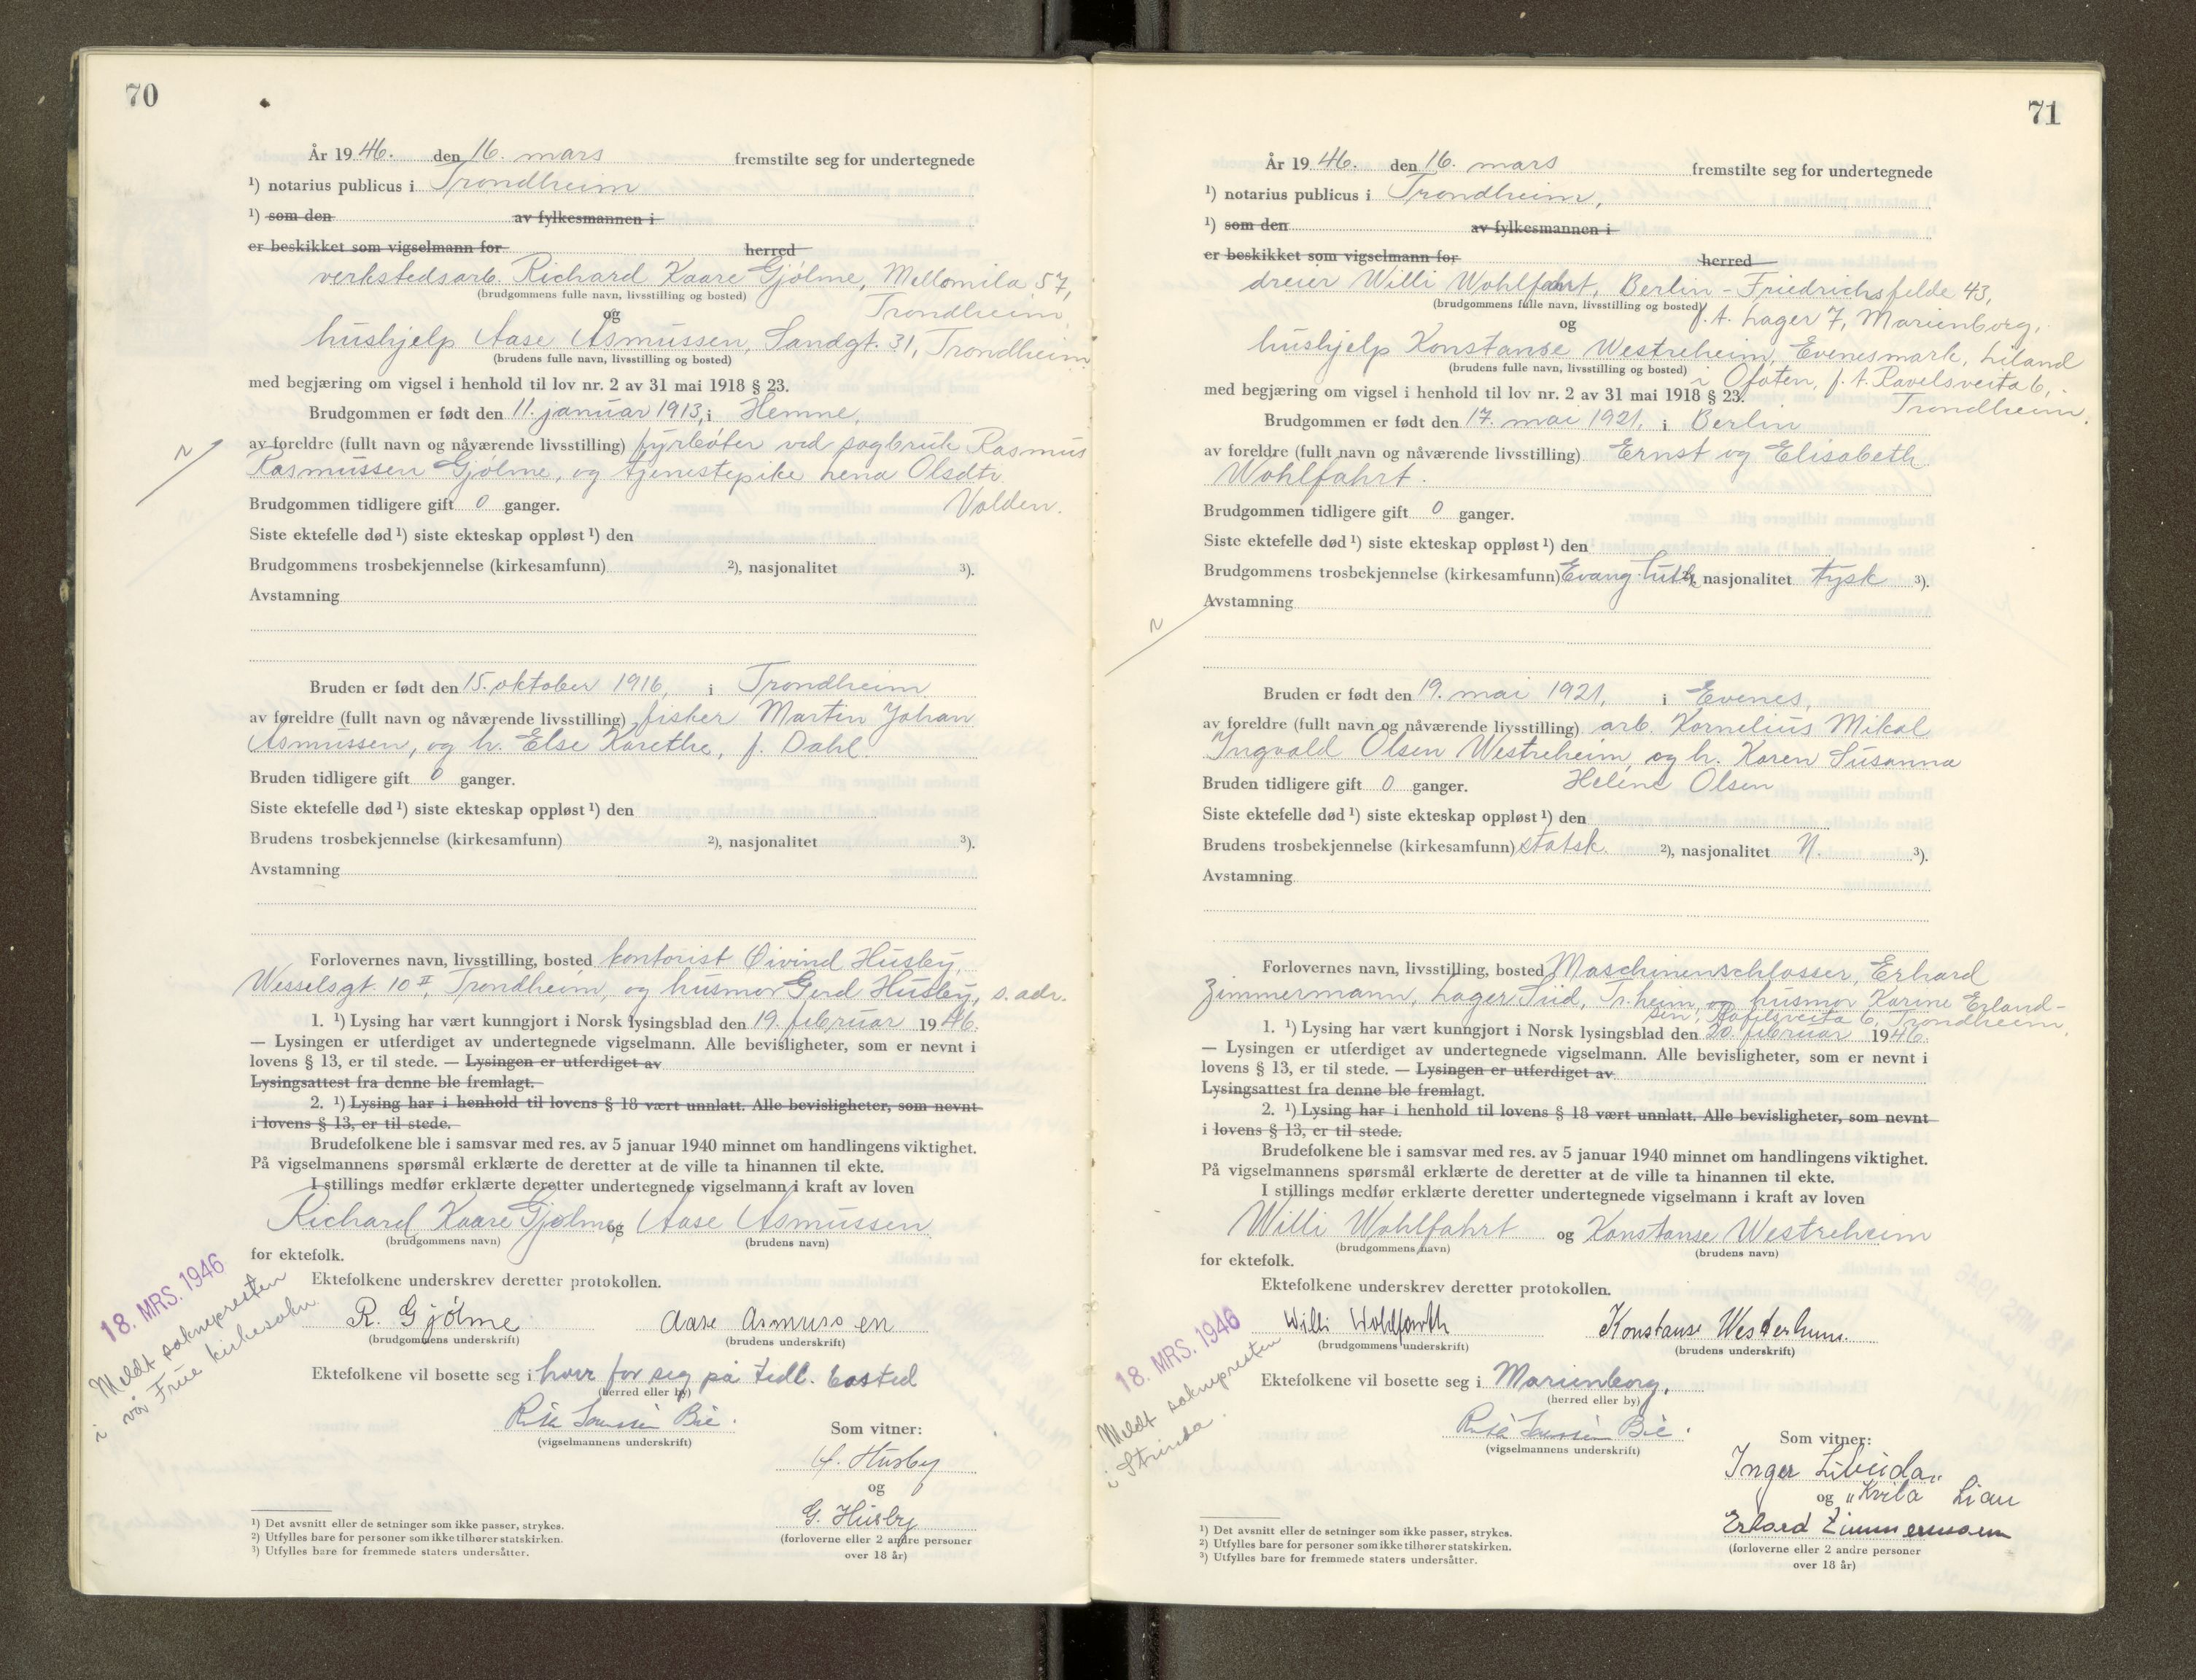 70
År 1946. den 16. mars fremstilte seg for undertegnede
¹) notarius publicus i Trondheim
¹) som den av fylkesmannen i
er beskikket som vigselmann for herred
verkstedsarb. Richard Kaare Gjølme, Mellomila 57,
(brudgommens fulle navn, livsstilling og bosted)
Trondheim
og
hushjelp Aase Asmussen, Sandgt. 31, Trondheim
(brudens fulle navn, livsstilling og bosted)
med begjæring om vigsel i henhold til lov nr. 2 av 31 mai 1918 § 23.
Brudgommen er født den 11. januar 1913, i Hemne,
av foreldre (fullt navn og nåværende livsstilling) fyrbøter ved sagbruk Rasmus
Rasmussen Gjølme, og tjenestepike Lena Olsdtr.
Volden.
Brudgommen tidligere gift 0 ganger.
Siste ektefelle død ¹) siste ekteskap oppløst ¹) den
Brudgommens trosbekjennelse (kirkesamfunn) ²), nasjonalitet ³).
Avstamning
Bruden er født den 15. oktober 1916, i Trondheim
av foreldre (fullt navn og nåværende livsstilling) fisker Martin Johan
Asmussen, og h. Else Karethe, f. Dahl.
Bruden tidligere gift 0 ganger.
Siste ektefelle død ¹) siste ekteskap oppløst ¹) den
Brudens trosbekjennelse (kirkesamfunn) ²), nasjonalitet ³).
Avstamning
Forlovernes navn, livsstilling, bosted kontorist Øivind Husby,
Wesselsgt. 10 II, Trondheim, og husmor Gerd Husby, s. adr.
1. ¹) Lysing har vært kunngjort i Norsk lysingsblad den 19. februar 1946.
— Lysingen er utferdiget av undertegnede vigselmann. Alle bevisligheter, som er nevnt i
lovens § 13, er til stede. — Lysingen er utferdiget av
Lysingsattest fra denne ble fremlagt.
2. ¹) Lysing har i henhold til lovens § 18 vært unnlatt. Alle bevisligheter, som nevnt
i lovens § 13, er til stede.
Brudefolkene ble i samsvar med res. av 5 januar 1940 minnet om handlingens viktighet.
På vigselmannens spørsmål erklærte de deretter at de ville ta hinannen til ekte.
I stillings medfør erklærte deretter undertegnede vigselmann i kraft av loven
Richard Kaare Gjølme og Aase Asmussen
(brudgommens navn) (brudens navn)
for ektefolk.
Ektefolkene underskrev deretter protokollen.
18. MRS. 1946
Meldt sokneprestens
i vår Frue kirkesokn.
R. Gjølme Aase Asmussen
(brudgommens underskrift) (brudens underskrift)
Ektefolkene vil bosette seg i hver for seg på tidl. bosted
(herred eller by)
(vigselmannens underskrift)
Som vitner:
Ø. Husby
og
G. Husby
(forloverne eller 2 andre personer
over 18 år)
¹) Det avsnitt eller de setninger som ikke passer, strykes.
²) Utfylles bare for personer som ikke tilhører statskirken.
³) Utfylles bare for fremmede staters undersåtter.
71
År 1946. den 16. mars fremstilte seg for undertegnede
¹) notarius publicus i Trondheim,
¹) som den av fylkesmannen i
er beskikket som vigselmann for herred
dreier Willi Wohlfahrt, Berlin - Friedrichsfelde 43,
(brudgommens fulle navn, livsstilling og bosted)
f. t. Lager 7, Marienborg,
og
hushjelp Konstanse Westreheim, Evenesmark, Liland
(brudens fulle navn, livsstilling og bosted)
i Ofoten, f. t. Ravelsveita 6,
med begjæring om vigsel i henhold til lov nr. 2 av 31 mai 1918 § 23.
Trondheim.
Brudgommen er født den 17. mai 1921, i Berlin
av foreldre (fullt navn og nåværende livsstilling) Ernst og Elisabeth
Wohlfahrt.
Brudgommen tidligere gift 0 ganger.
Siste ektefelle død ¹) siste ekteskap oppløst ¹) den
Brudgommens trosbekjennelse (kirkesamfunn) Evang. luth., nasjonalitet tysk ³).
Avstamning
Bruden er født den 19. mai 1921, i Evenes,
av foreldre (fullt navn og nåværende livsstilling) arb. Kornelius Mikal
Ingvald Olsen Westreheim, og h. Karen Susanna
Helene Olsen
Bruden tidligere gift 0 ganger.
Siste ektefelle død ¹) siste ekteskap oppløst ¹) den
Brudens trosbekjennelse (kirkesamfunn) statsk. ²), nasjonalitet N. ³).
Avstamning
Forlovernes navn, livsstilling, bosted Maschinenschlosser, Erhard
Zimmermann, Lager Süd, Tr.heim, og husmor Karine Erland-
sen, Ravelsveita 6, Trondheim,
1. ¹) Lysing har vært kunngjort i Norsk lysingsblad den 20. februar 1946.
— Lysingen er utferdiget av undertegnede vigselmann. Alle bevisligheter, som er nevnt i
lovens § 13, er til stede. — Lysingen er utferdiget av
Lysingsattest fra denne ble fremlagt.
2. ¹) Lysing har i henhold til lovens § 18 vært unnlatt. Alle bevisligheter, som nevnt
i lovens § 13, er til stede.
Brudefolkene ble i samsvar med res. av 5 januar 1940 minnet om handlingens viktighet.
På vigselmannens spørsmål erklærte de deretter at de ville ta hinannen til ekte.
I stillings medfør erklærte deretter undertegnede vigselmann i kraft av loven
Willi Wohlfahrt og Konstanse Westreheim
(brudgommens navn) (brudens navn)
for ektefolk.
Ektefolkene underskrev deretter protokollen.
18. MRS. 1946
Meldt soknepresten
i Strinda.
Willi Wohlfarth Konstanse
(brudgommens underskrift) (brudens underskrift)
Ektefolkene vil bosette seg i Marienborg,
(herred eller by)
(vigselmannens underskrift)
Som vitner:
Inger
og "Kvila" Lian
Erhard Zimmermann
(forloverne eller 2 andre personer
over 18 år)
¹) Det avsnitt eller de setninger som ikke passer, strykes.
²) Utfylles bare for personer som ikke tilhører statskirken.
³) Utfylles bare for fremmede staters undersåtter.